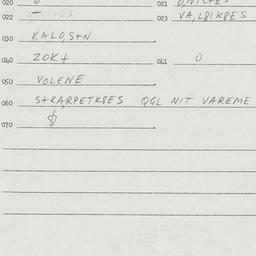 020 021
022 023 VA,L8IK8ES
030 KALO,S+N
040 ZOK+ 041 0
050 VOLENE
060 S+KA,RPETK8ES QGL NIT VAREME
070